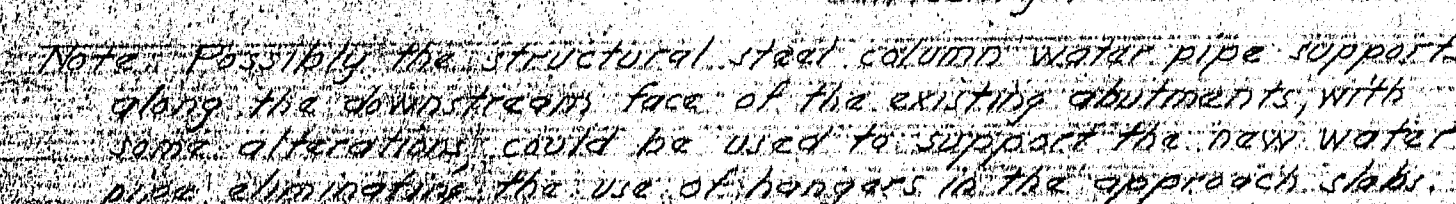 Note: Possibly the structural steel column water pipe supports
along the downstream face of the existing abutments, with
some alterations, could be used to support the new water
pipe, eliminating the use of hangers in the approach slabs.